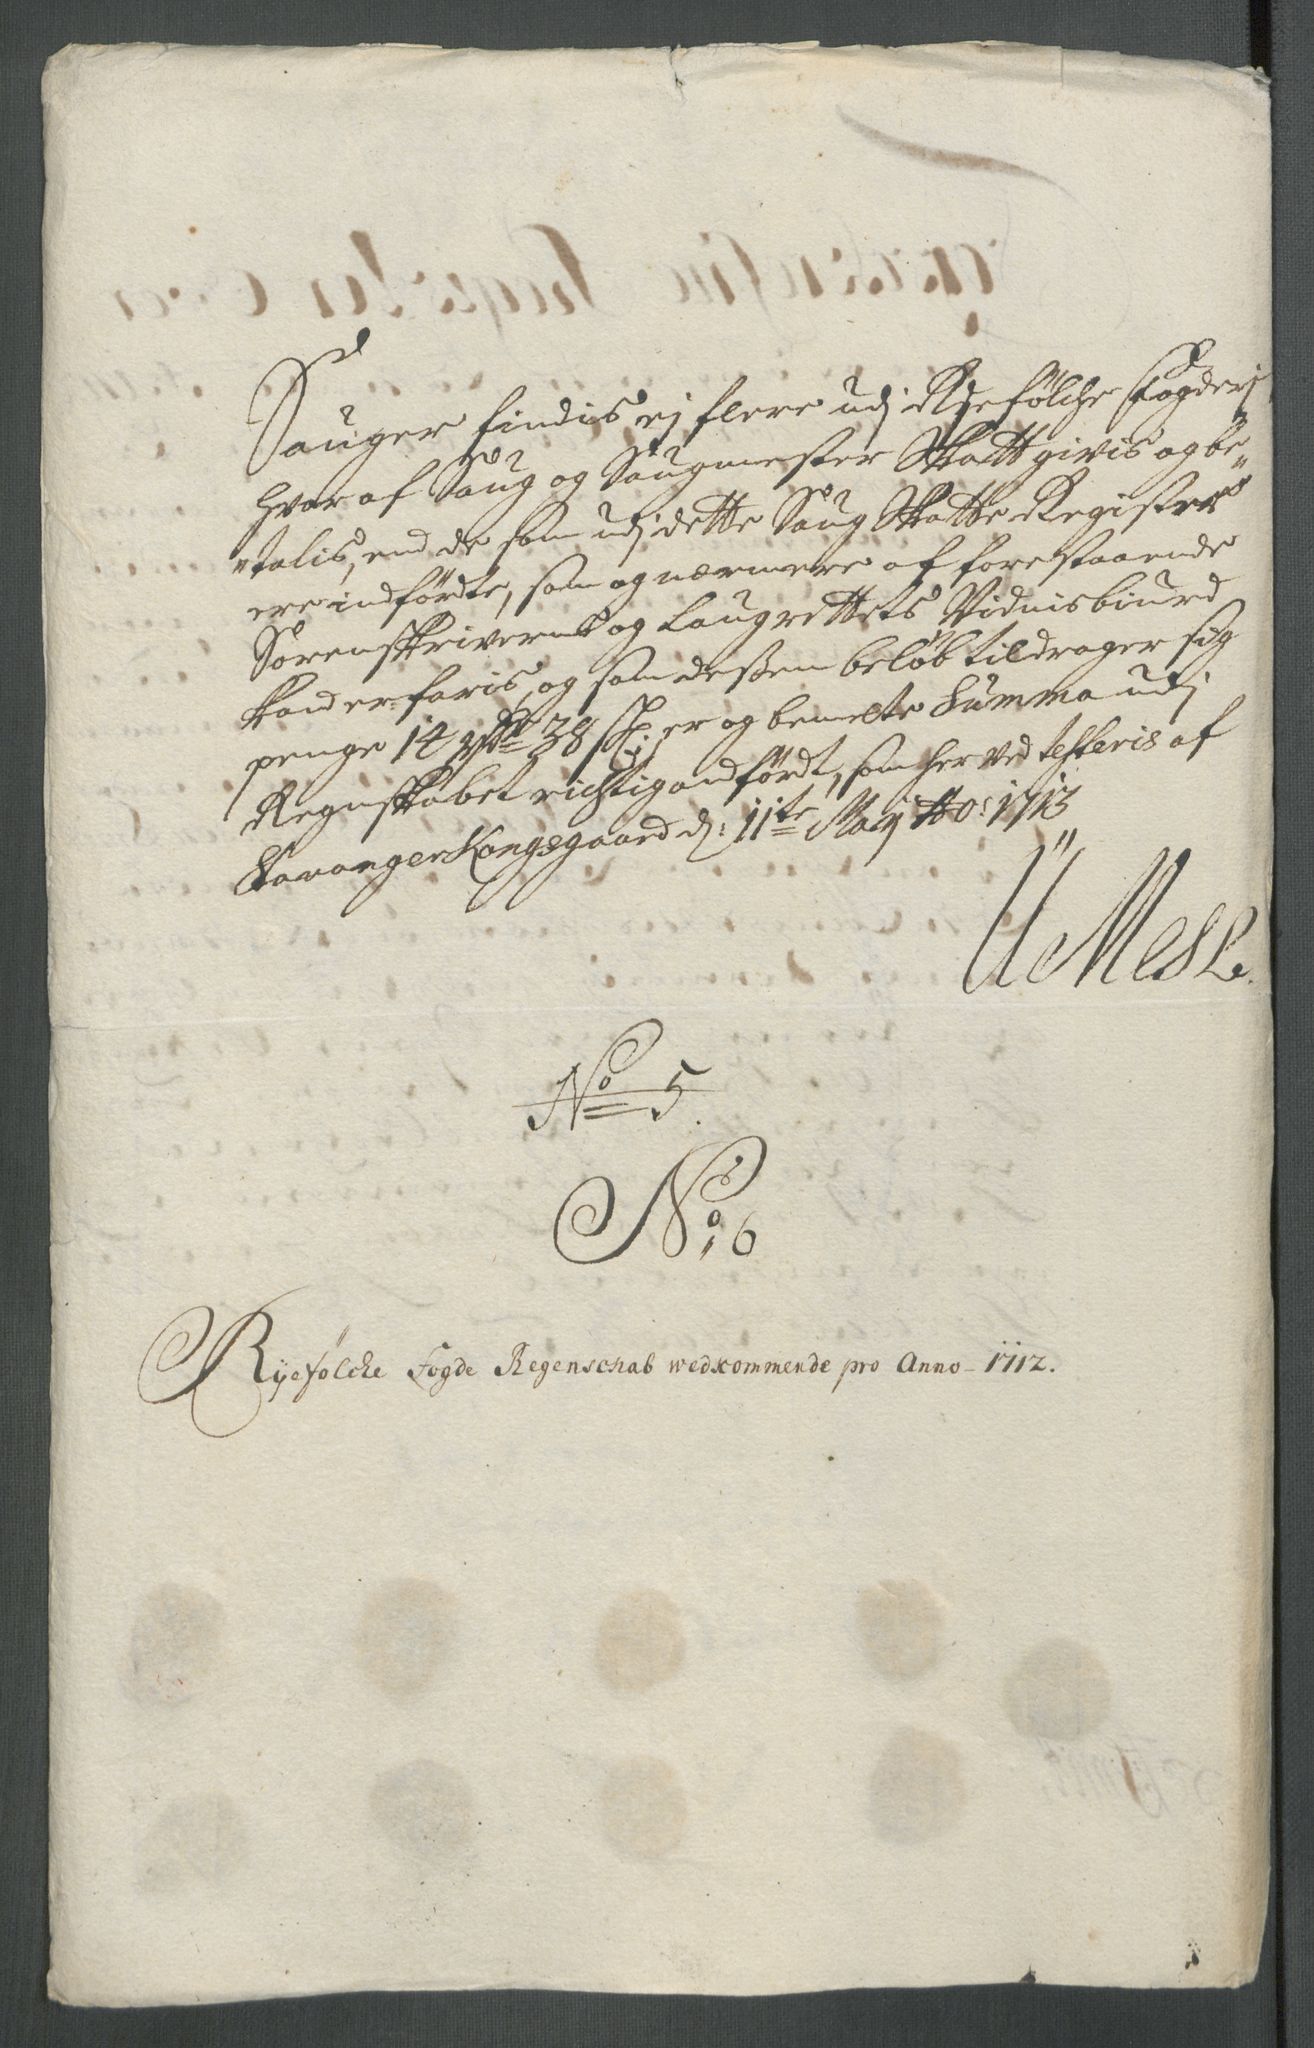 Sauger findis ej flere udj Ryefölche Fogderj
hvor af Saug og Saugmester Skatt givis og be„
„talis, end de som udj dette Saug Skatte Register
ere indförte, som og nærmere af forestaaende
Sorenskriverens og Laugrettets Vidnisbiurd
kand er faris, og som deßen beløb tildrager sig
penge 14 rdr 38 s, er og bemelte Summa udj
Regnskabet richtig andfördt, som her ved testeris af
Stavanger Kongsgaard d: 11te Maij Ao: 1713
No 5.
No: 6
Ryefölcke Fogde Regenschab wedkommende pro Anno 1712.